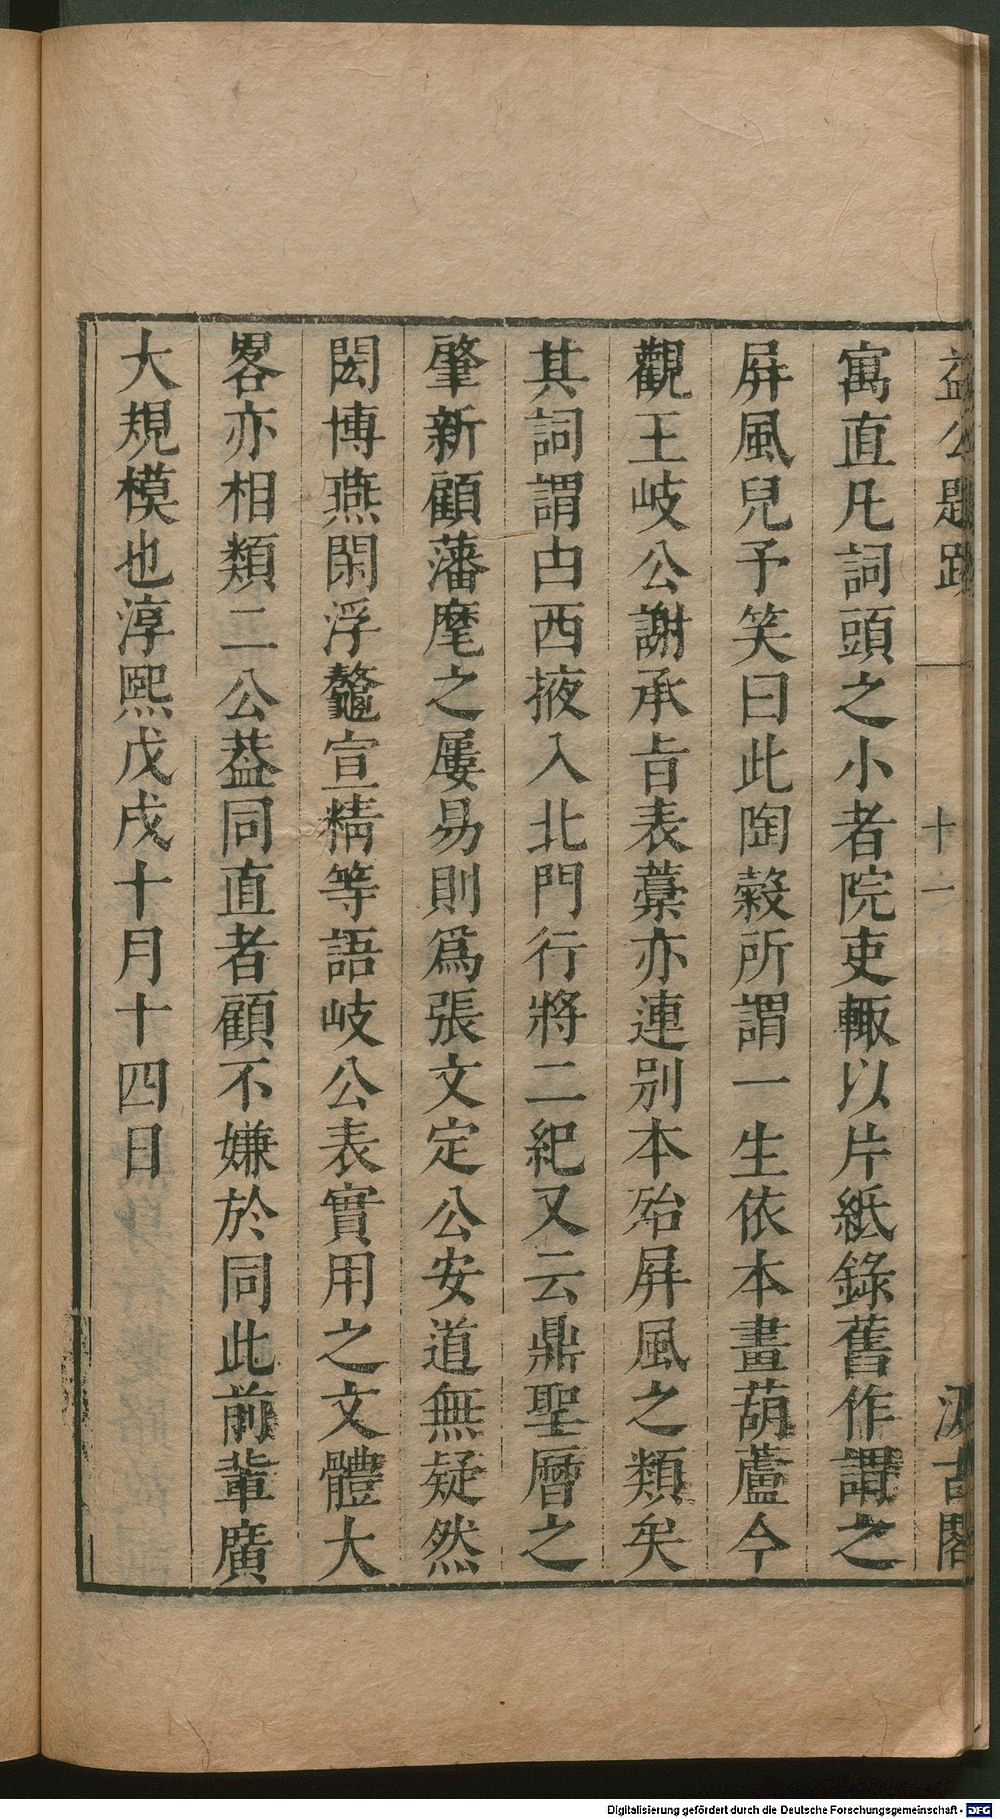 益公題跋
十一
汲古閣
寓直凡詞頭之小者院吏輙以片紙錄舊作謂之
屏風兒予笑曰此陶糓所謂一生依本畫葫蘆今
觀王岐公謝承㫖表藁亦連別本殆屏風之類矣
其詞謂由西掖入北門行將二紀又云鼎聖曆之
肇新顧藩麾之屢易則爲張文定公安道無疑然
閎博燕閑浮鼇宣精等語岐公表實用之文體大
畧亦相類二公葢同直者顧不嫌於同此前輩廣
大規模也淳熙戊戌十月十四日
Digitalisierung gefördert durch die Deutsche Forschungsgemeinschaft - DFG